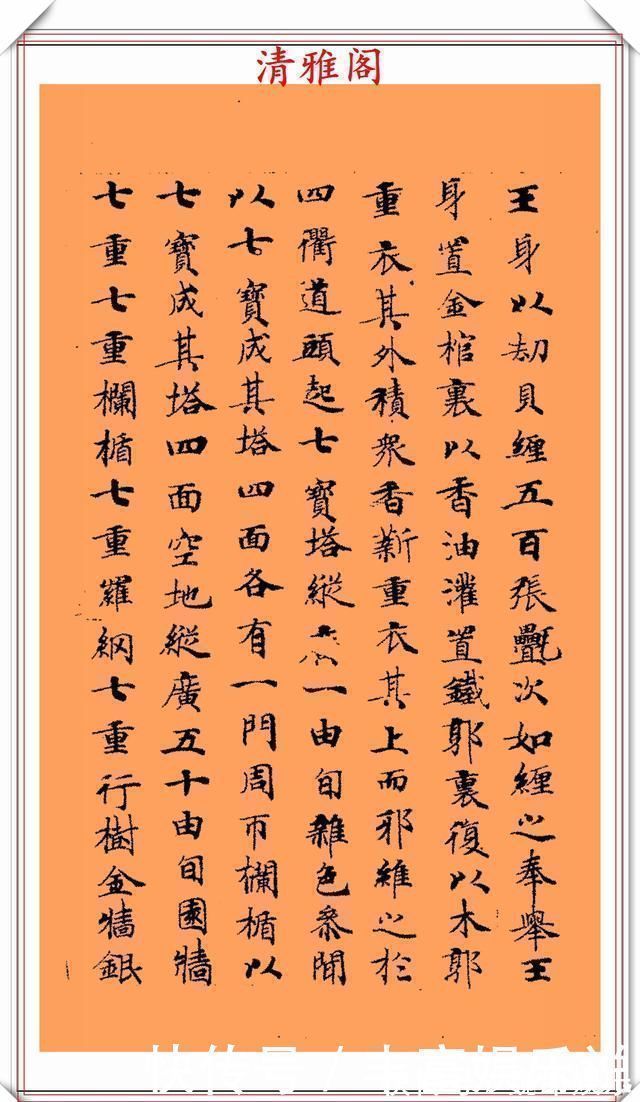 清雅阁
王身以劫貝纏五百張㲲次如纏之奉舉王
身置金棺裏以香油灌置鐵郭裏復以木郭
重衣其外積衆香薪重衣其上而耶維之於
四衢道頭起七寶塔縱一由旬雜色參間
以七寶成其塔四面各有一門周帀欄楯以
七寶成其塔四面空地縱廣五十由旬園墻
七重七重欄楯七重羅網七重行樹金墻銀